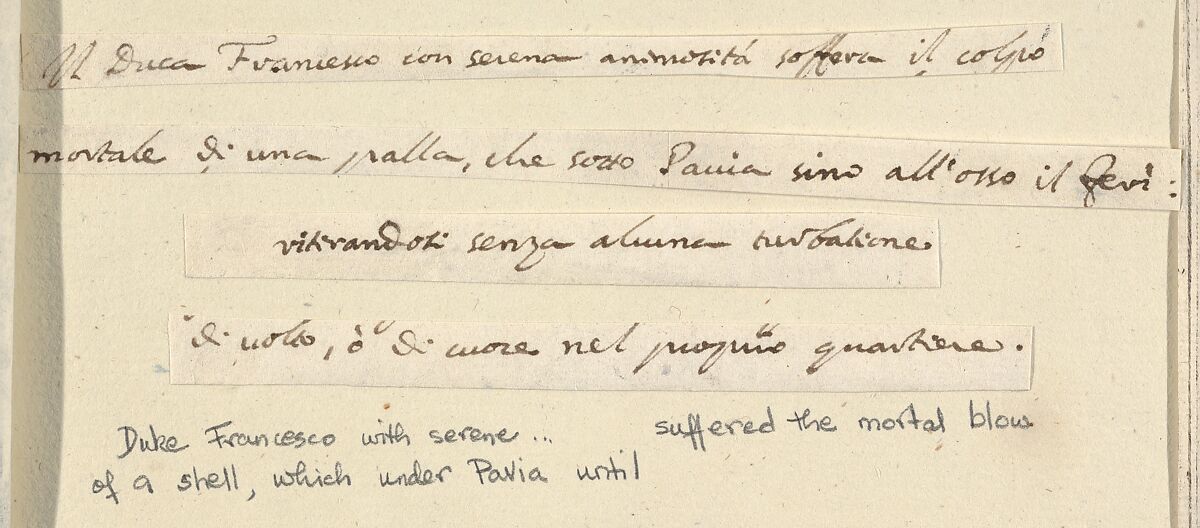 Il Duca Francesco con serena animosità soffera il colpo
mortale di una palla, che sotto Pavia sino all'osso il ferì:
ritirandosi senza alcuna turbatione
di volto, ò di cuore nel proprio quartiere.
Duke Francesco with serene ... suffered the mortal blow
of a shell, which under Pavia until